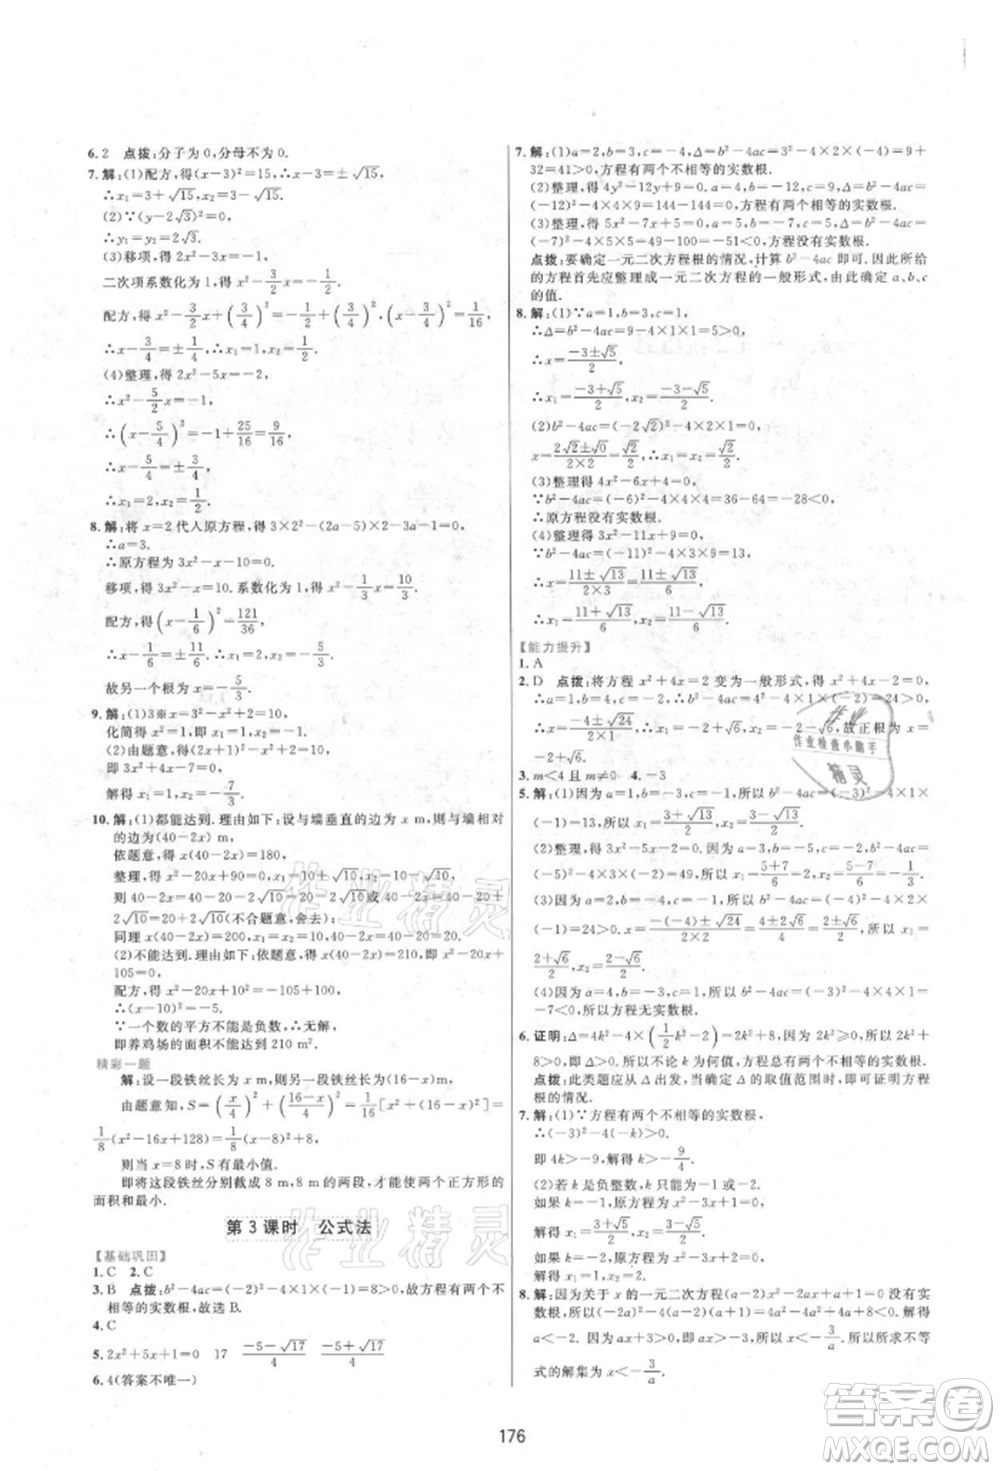 6.2 点拨:分子为0,分母不为0.
7.解:(1)配方,得(x-3)²=15,
∴x-3=±√15,
∴x₁=3+√15,x₂=3-√15.
(2)∵(y-2√3)²=0,
∴y₁=y₂=2√3.
(3)移项,得2x²-3x=-1,
二次项系数化为1,得x²-3/2x=-1/2,
配方,得x²-3/2x+(3/4)²=-1/2+(3/4)²=1/16,
∴x-3/4=±1/4,∴x₁=1,x₂=1/2.
(4)整理,得2x²-5x=-2,
∴x²-5/2x=-1,
∴(x-5/4)²=-1+25/16=9/16,
∴x-5/4=±3/4,
∴x₁=2,x₂=1/2.
8.解:将x=2代入原方程,得3×2²-2(2a-5)×2-10=0,
∴a=3.
∴原方程为3x²-x-10=0.
移项,得3x²-x=10.系数化为1,得x²-1/3x=10/3,
配方,得(x-1/6)²=121/36,
∴x-1/6=±11/6,∴x₁=2,x₂=-5/3.
故另一根为-5/3.
9.解:(1)3※x=3²-3x+2=0,
化简得3x=11,解得x=11/3.
(2)由题意,得(-2)²-(-2+3)x+2=0,
即
解得x=
10.解:(1)都能达到.理由如下:设与墙垂直的边为x m,则与墙相对
的边为(40-2x) m,
依题意,得x(40-2x)=180,
整理,得x²-20x+90=0,x₁=10+√10,x₂=10-√10,
则40-2x=40-2(10+√10)=20-2√10或40-2x=20+
2√10>20+2√10(不合题意,舍去);
同理x(40-2x)=200,x₁=x₂=10,40-2x=20.
(2)不能达到.理由如下:依题意,得x(40-2x)=210,即x²-20x+
105=0,
配方,得x²-20x+10²=-105+100,
∴(x-10)²=-5.
∵一个数的平方不能是负数,∴无解,
即养鸡场的面积不能达到210 m².
精彩一题
解:设一段铁丝长为x m,则另一段长为(16-x) m,
由题意知,S=(x/4)²+((16-x)/4)²=1/16[x²+(16-x)²]=
1/8(x²-16x+128)=1/8(x-8)²+8,
则当x=8时,S有最小值.
即将这段铁丝分别截成8 m,8 m的两段,才能使两个正方形的
面积和最小.
第3课时 公式法
【基础巩固】
1.C 2.C
3.B 点拨:b²-4ac=(-2)²-4×1×(-1)=8>0,故方程有两个不
相等的实数根,故选B.
4.C
5.2x²+5x+1=0 17 (-5-√17)/4 (-5+√17)/4
6.4(答案不唯一)
7.解:(1)a=2,b=3,c=-4,Δ=b²-4ac=3²-4×2×(-4)=9+
32=41>0,方程有两个不相等的实数根.
(2)整理,得4y²-12y+9=0,a=4,b=-12,c=9,Δ=b²-4ac=
(-12)²-4×4×9=144-144=0,方程有两个相等的实数根.
(3)整理,得5x²-7x+5=0,a=5,b=-7,c=5,Δ=b²-4ac=
(-7)²-4×5×5=49-100=-51<0,方程没有实数根.
点拨:要确定一元二次方程根的情况,计算b²-4ac即可.因此所给
的方程首先应整理成一元二次方程的一般形式,由此确定a、b、c
的值.
8.解:(1)∵a=1,b=3,c=1,
∴Δ=b²-4ac=9-4×1×1=5>0,
∴x=(-3±√5)/2,
∴x₁=(-3+√5)/2,x₂=(-3-√5)/2.
(2)b²-4ac=(-2√2)²-4×2×1=0,
x=(2√2±0)/(2×2)=√2/2,∴x₁=x₂=√2/2.
(3)整理得4x²-6x+4=0,
∵b²-4ac=(-6)²-4×4×4=36-64=-28<0,
∴原方程没有实数根.
(4)整理,得3x²-11x+9=0,
∵b²-4ac=(-11)²-4×3×9=13>0,
∴x=(11±√13)/(2×3)=(11±√13)/6,
∴x₁=(11+√13)/6,x₂=(11-√13)/6.
【能力提升】
1.A
2.D 点拨:将方程x²+4x=2变为一般形式,得x²+4x-2=0,
∴a=1,b=4,c=-2,∴b²-4ac=4²-4×1×(-2)=24>0,
∴x=(-4±√24)/2=-2±√6.∵-2-√6<0,故正根为x=
-2+√6.
3.m<4且m≠0 4.-3
5.解:(1)因为a=1,b=-3,c=-1,b²-4ac=(-3)²-4×1×
(-1)=13>0,所以x=(3±√13)/2,所以x₁=(3+√13)/2,x₂=(3-√13)/2.
(2)整理,得
(-5)²-4×2×(-3)=49>0,所以
(3)因为a=2,b=-4,c=-1,b²-4ac=(-4)²-4×2×
(-1)=24>0,所以x=(-(-4)±√24)/(2×2)=(4±2√6)/4=(2±√6)/2,所以x₁=
(2+√6)/2,x₂=(2-√6)/2.
(4)因为a=1,b=3,c=4,b²-4ac=3²-4×1×4=
-7<0,所以方程无实数根.
6.证明:Δ=4k²-4×(1/2k²-2)=2k²+8,因为k²≥0,所以2k²+
8>0,即Δ>0.所以不论k为何值,方程总有两个不相等的实数根.
点拨:此类题应从Δ出发,当确定Δ的取值范围时,即可证明方程
根的情况.
7.解:(1)∵方程有两个不相等的实数根,
∴(-3)²-4(-k)>0.
即4k>-9,解得k>-9/4.
(2)若k是负整数,k只能为-1或-2.
如果k=-1,原方程为x²-3x+1=0,
解得x₁=(3+√5)/2,x₂=(3-√5)/2.
如果k=-2,原方程为x²-3x+2=0,
解得x₁=1,x₂=2.
8.解:因为关于x的一元二次方程(a-2)x²-2ax+a+1=0没有实
数根,所以(-2a)²-4(a-2)(a+1)=4a²-4a²+4a+8<0,解得
a<-2.因为ax+3>0,即ax>-3,所以x<-3/a,所以所求不等
式的解集为x<-3/a.
176
作业检查小帮手
精灵
作业精灵
作业精灵
答案圈
MXQE.COM